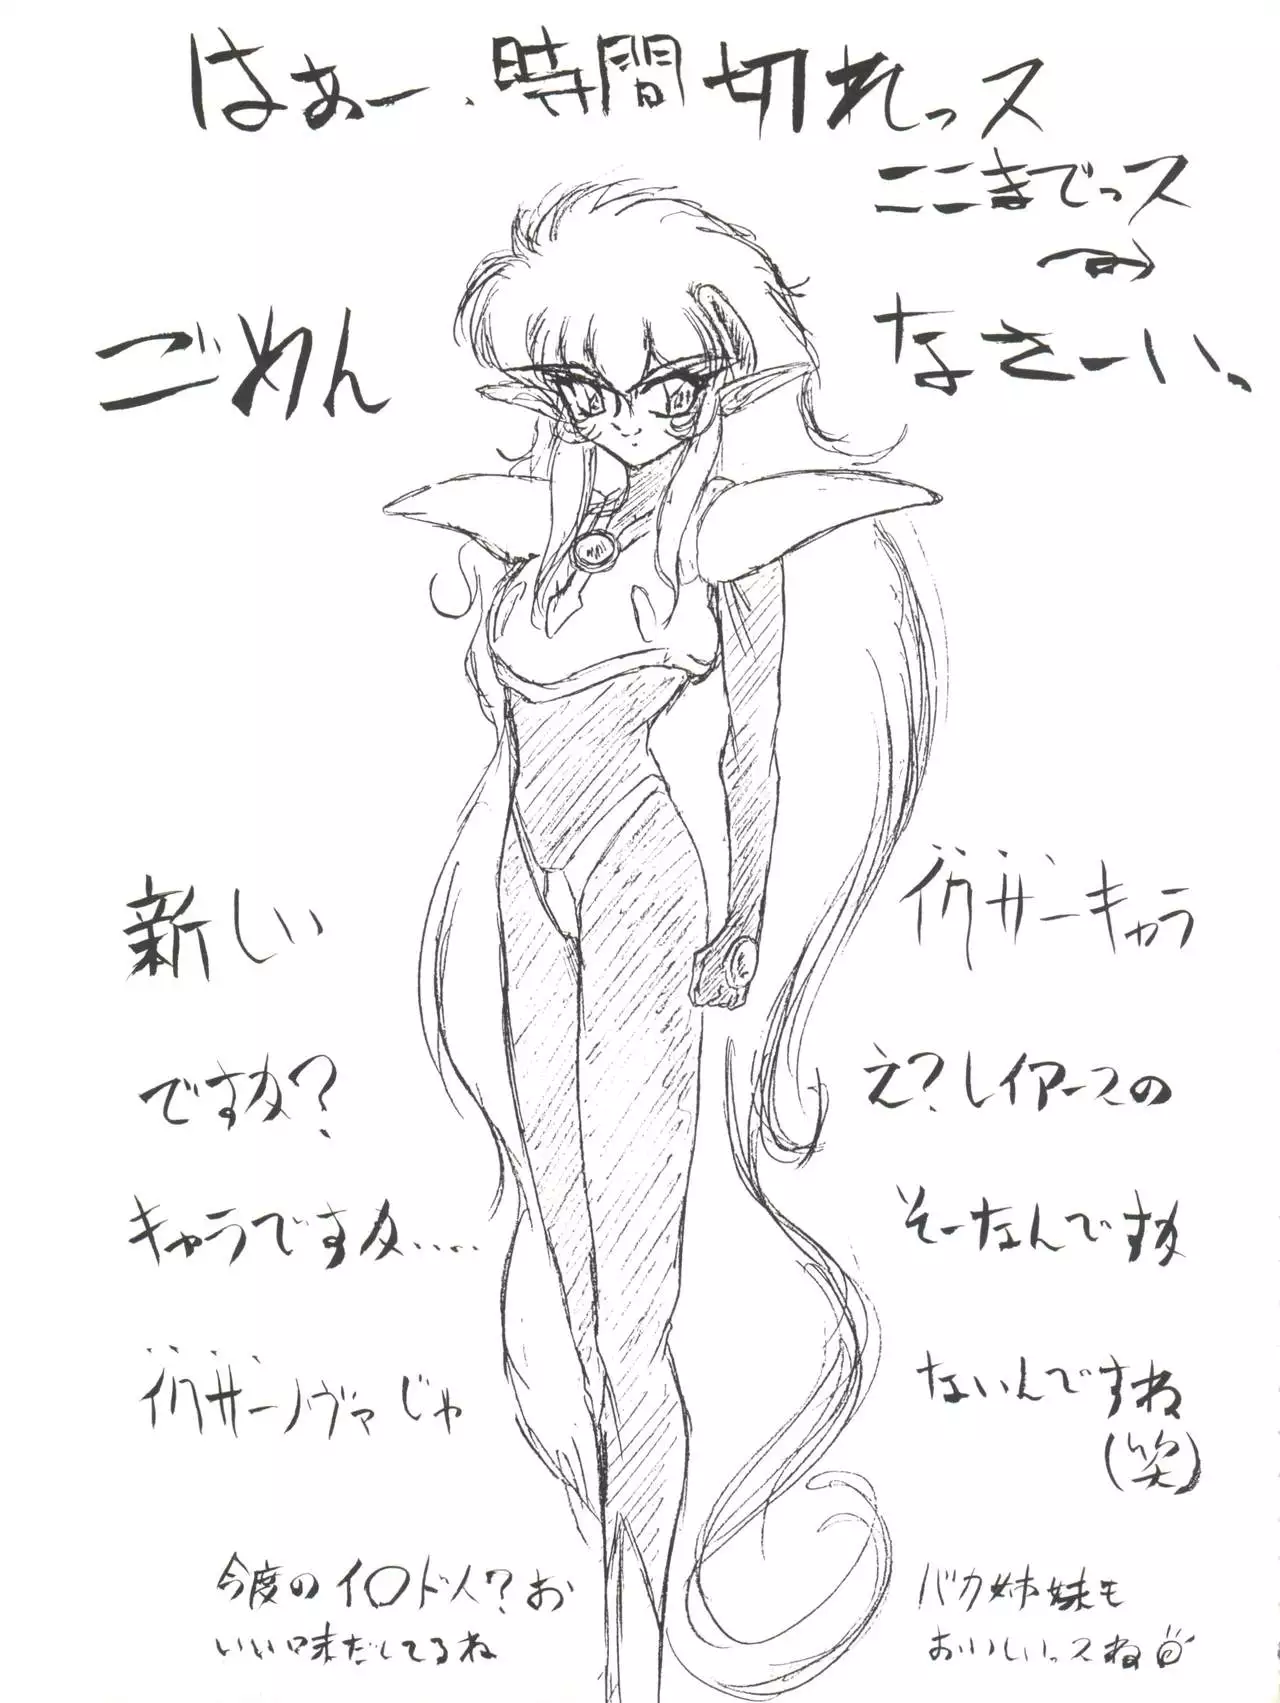 はぁー、時間切れっス
ここまでっス
ごめん なさーい、
新しい イクザーキャラ
ですか? え?レイアースの
キャラですか..... そーなんですか
イクザーノヴァじゃ ないんですね
(笑)
今度のイ〇ド人?お
いい味だしてるね
バカ姉妹も
おいしいっスね